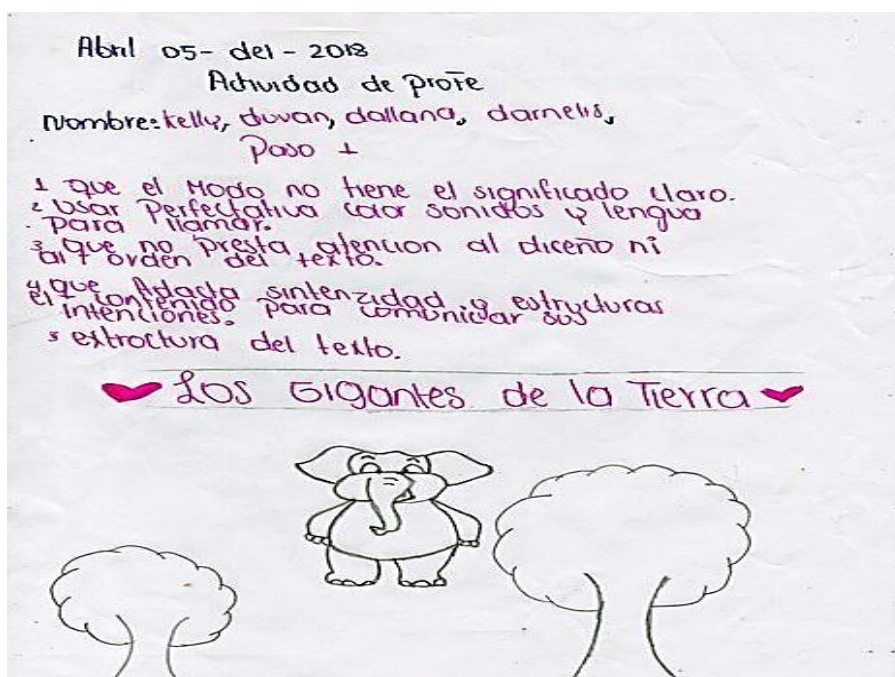 Abril 05- del - 2018
Actividad de profe
Nombre: kelly, duvan, dallana, darnelis,
Paso 1
1 que el Modo no tiene el significado claro.
2 Usar Perfectativa color sonidos y lengua
. para llamar.
3 que no presta atencion al diceño ni
al orden del texto.
4 que Adacta sintenzidad y estructuras
el contenido para comunicar sus
intenciones.
5 extroctura del texto.
Los Gigantes de la Tierra